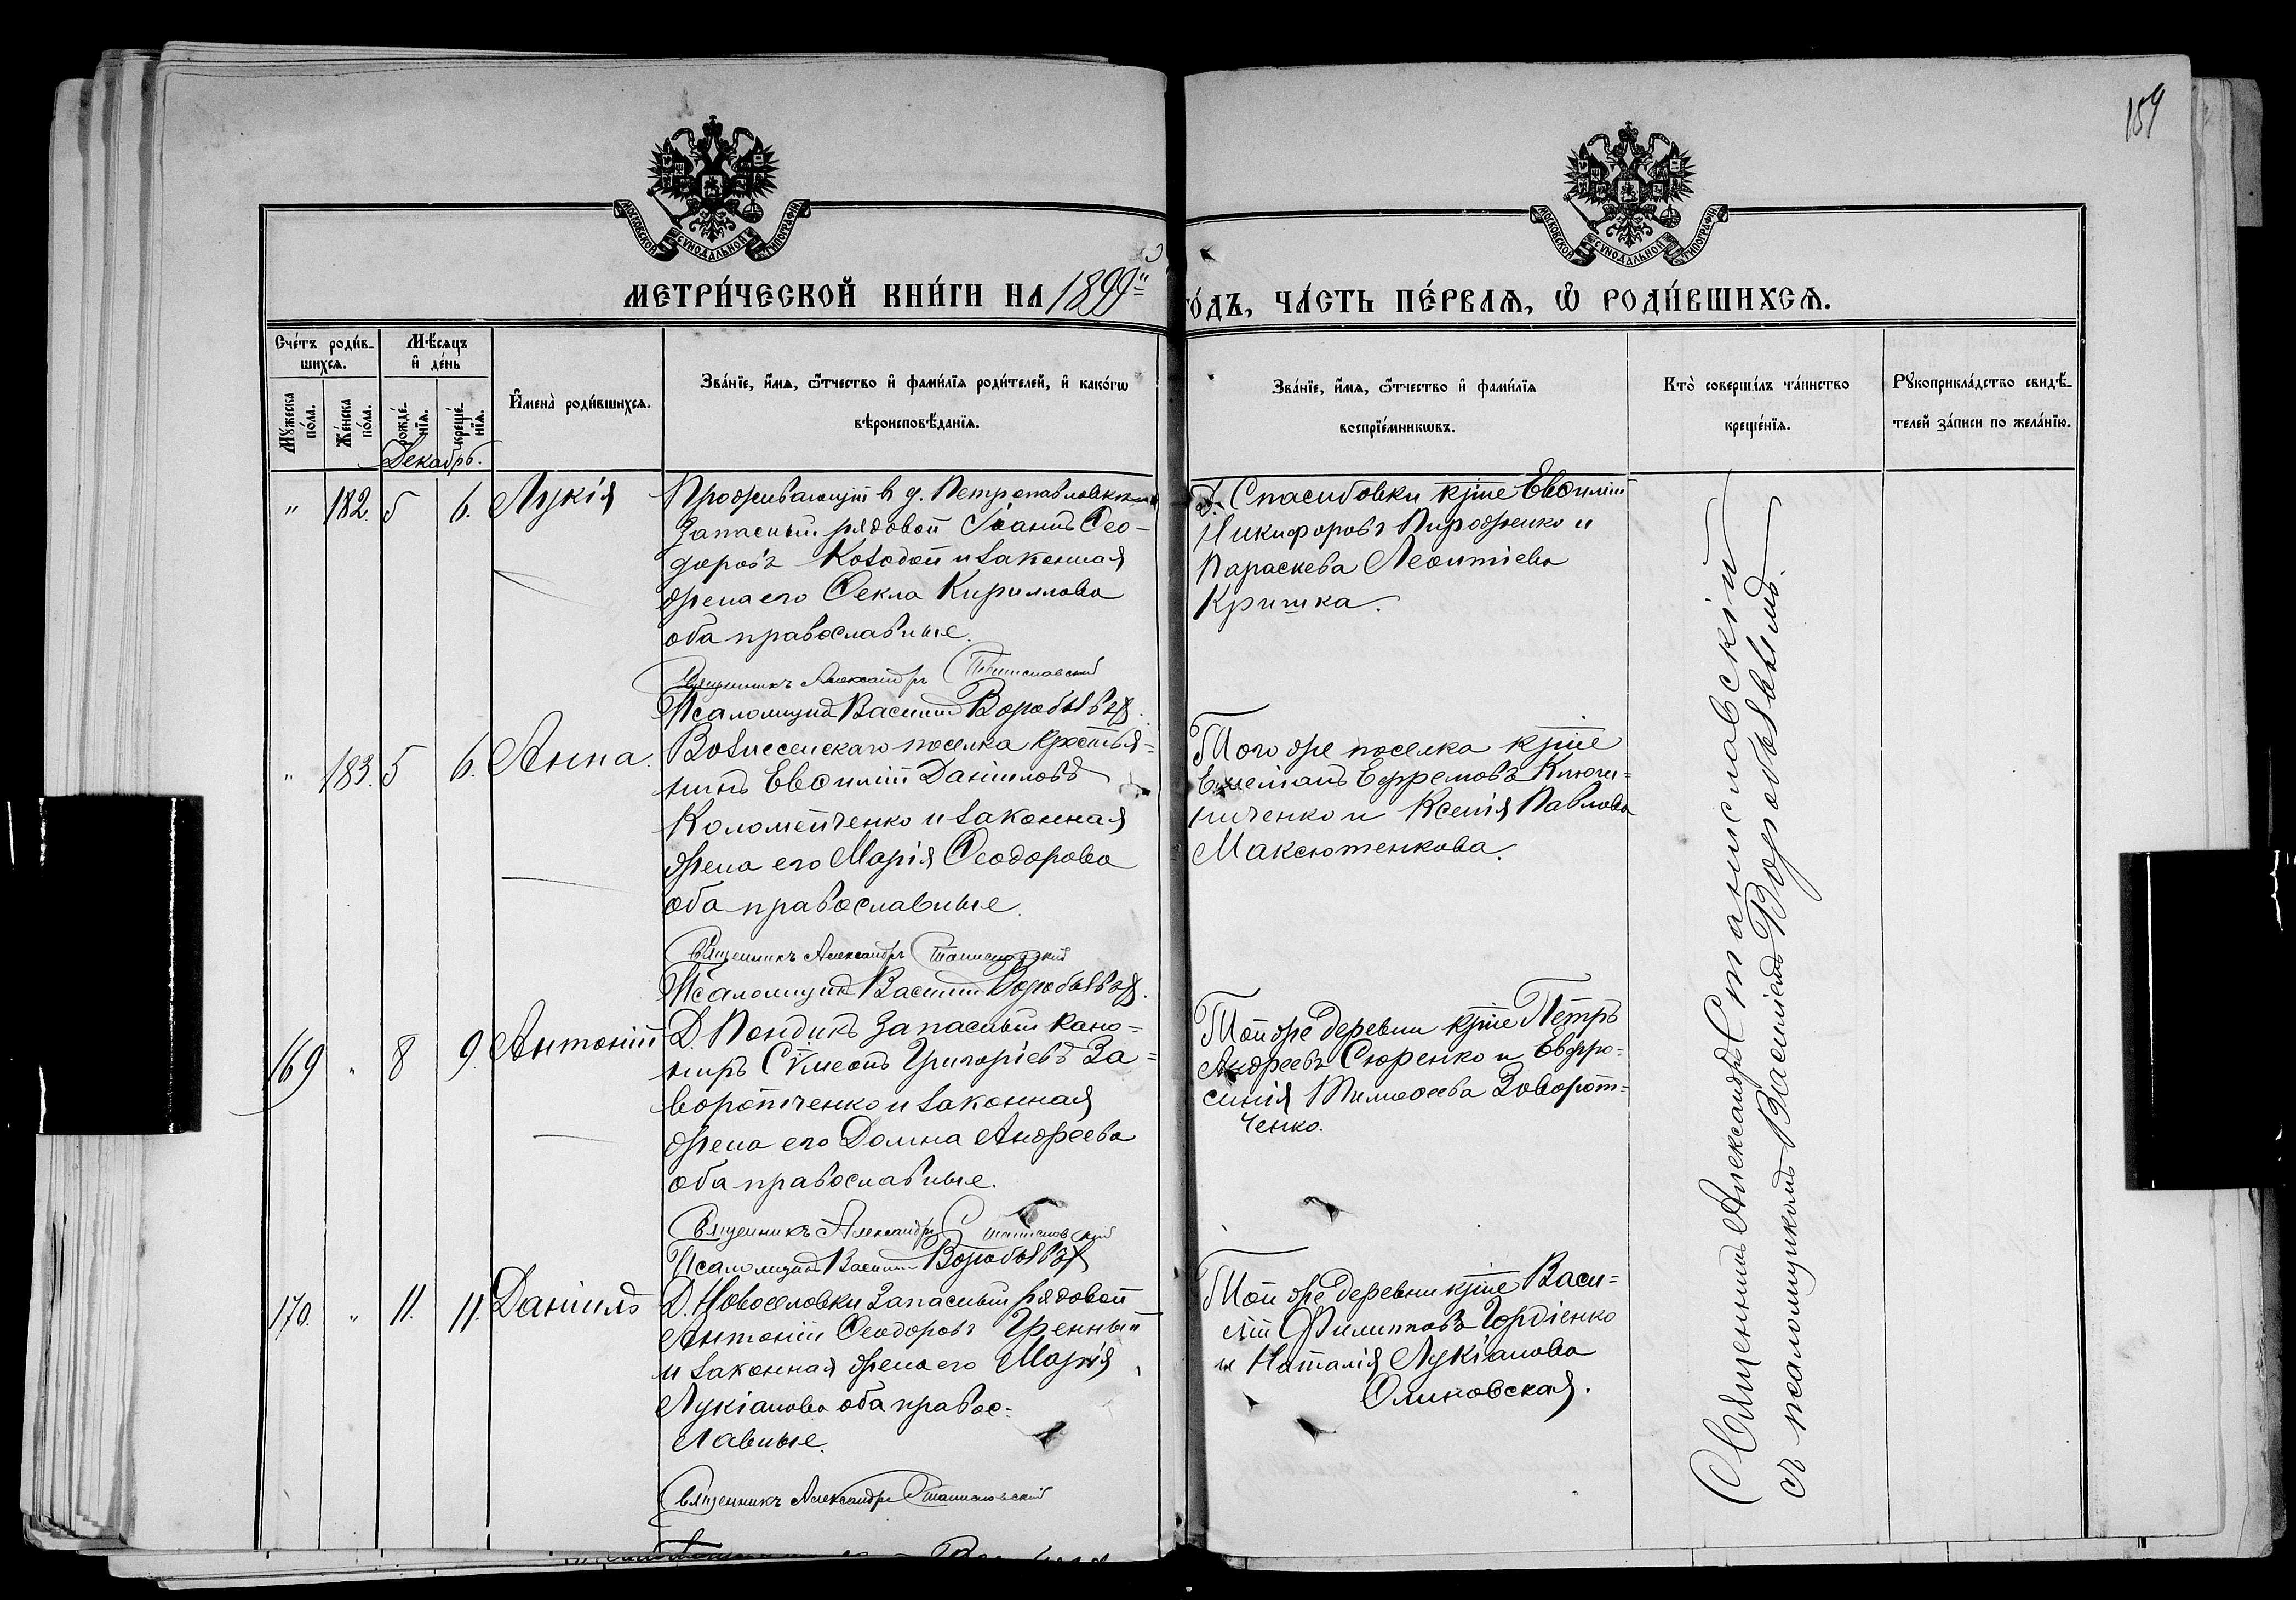 159
МОСКОВСКОЙ СѴНОДАЛЬНОЙ ТИПОГРАФІИ
МОСКОВСКОЙ СѴНОДАЛЬНОЙ ТИПОГРАФІИ
МЕТРИ́ЧЕСКОЙ КНИ́ГИ НА 1899 го́дъ, ЧА́СТЬ ПЕ́РВАЯ, Ѡ҆ РОДИ́ВШИХСЯ.
Сче́тъ роди́в-
шихся.
Мѣ́сяцъ
и҆ де́нь
Му́жеска по́ла.
Же́нска по́ла.
рожде́-
нїя.
креще́-
нїя.
И҆мена̀ роди́вшихся.
Зва́нїе, и҆́мя, ѻ҆́тчество и҆ фами́лїя роди́телей, и҆ како́гѡ
вѣроисповѣ́данїя.
Зва́нїе, и҆́мя, ѻ҆́тчество и҆ фами́лїя
воспрїе́мникѡвъ.
Кто̀ соверши́лъ та́инство
креще́нїя.
Рꙋкоприкла́дство свидѣ́-
телей за́писи по жела́нїю.
Декабрь.
" 182. 5 6. Лукія
Проживающій в д. Петропавловкѣ
запасный рядовой Іоаннъ Ѳео-
доровъ Козодой и законная
жена его Ѳекла Кириллова
оба православные.
Священникъ Александръ Станиславскій
Псаломщикъ Василій Воробьевъ
д. Спасибовки кр͞не Евѳимій
Никифоровъ Пироженко и
Параскева Леонтіева
Кришка.
" 183. 5 6. Анна.
Вознесенскаго поселка крестья=
нинъ Евѳимій Даніиловъ
Коломейченко и законная
жена его Марія Ѳеодорова
оба православные.
Священникъ Александръ Станиславскій
Псаломщикъ Василій Воробьевъ.
Того же поселка кр͞не
Емеліанъ Ефремовъ Ключи=
ниченко и Ксенія Павлова
Максютенкова.
169 " 8 9. Антоній
Д. Пондикъ запасный кано=
ниръ Сѵмеонъ Григоріевъ За=
воротченко и законная
жена его Домна Андреева
оба православные.
Священникъ Александръ Станиславскій
Псаломщикъ Василій Воробьевъ
Той же деревни кр͞не Петръ
Андреевъ Сюренко и Евфро=
синія Тимоѳеева Заворот=
ченко.
170. " 11. 11. Даніилъ
Д. Новоселовки запасный рядовой
Антоній Ѳеодоровъ
и законная жена его Марія
Лукіанова оба правос=
лавные.
Священникъ Александръ Станиславскій
Той же деревни кр͞не Васи=
лій Филипповъ Гордіенко
и Наталія Лукіанова
Олиновская.
Священникъ Александръ Станиславскій
съ псаломщикомъ Василіемъ Воробьевымъ.